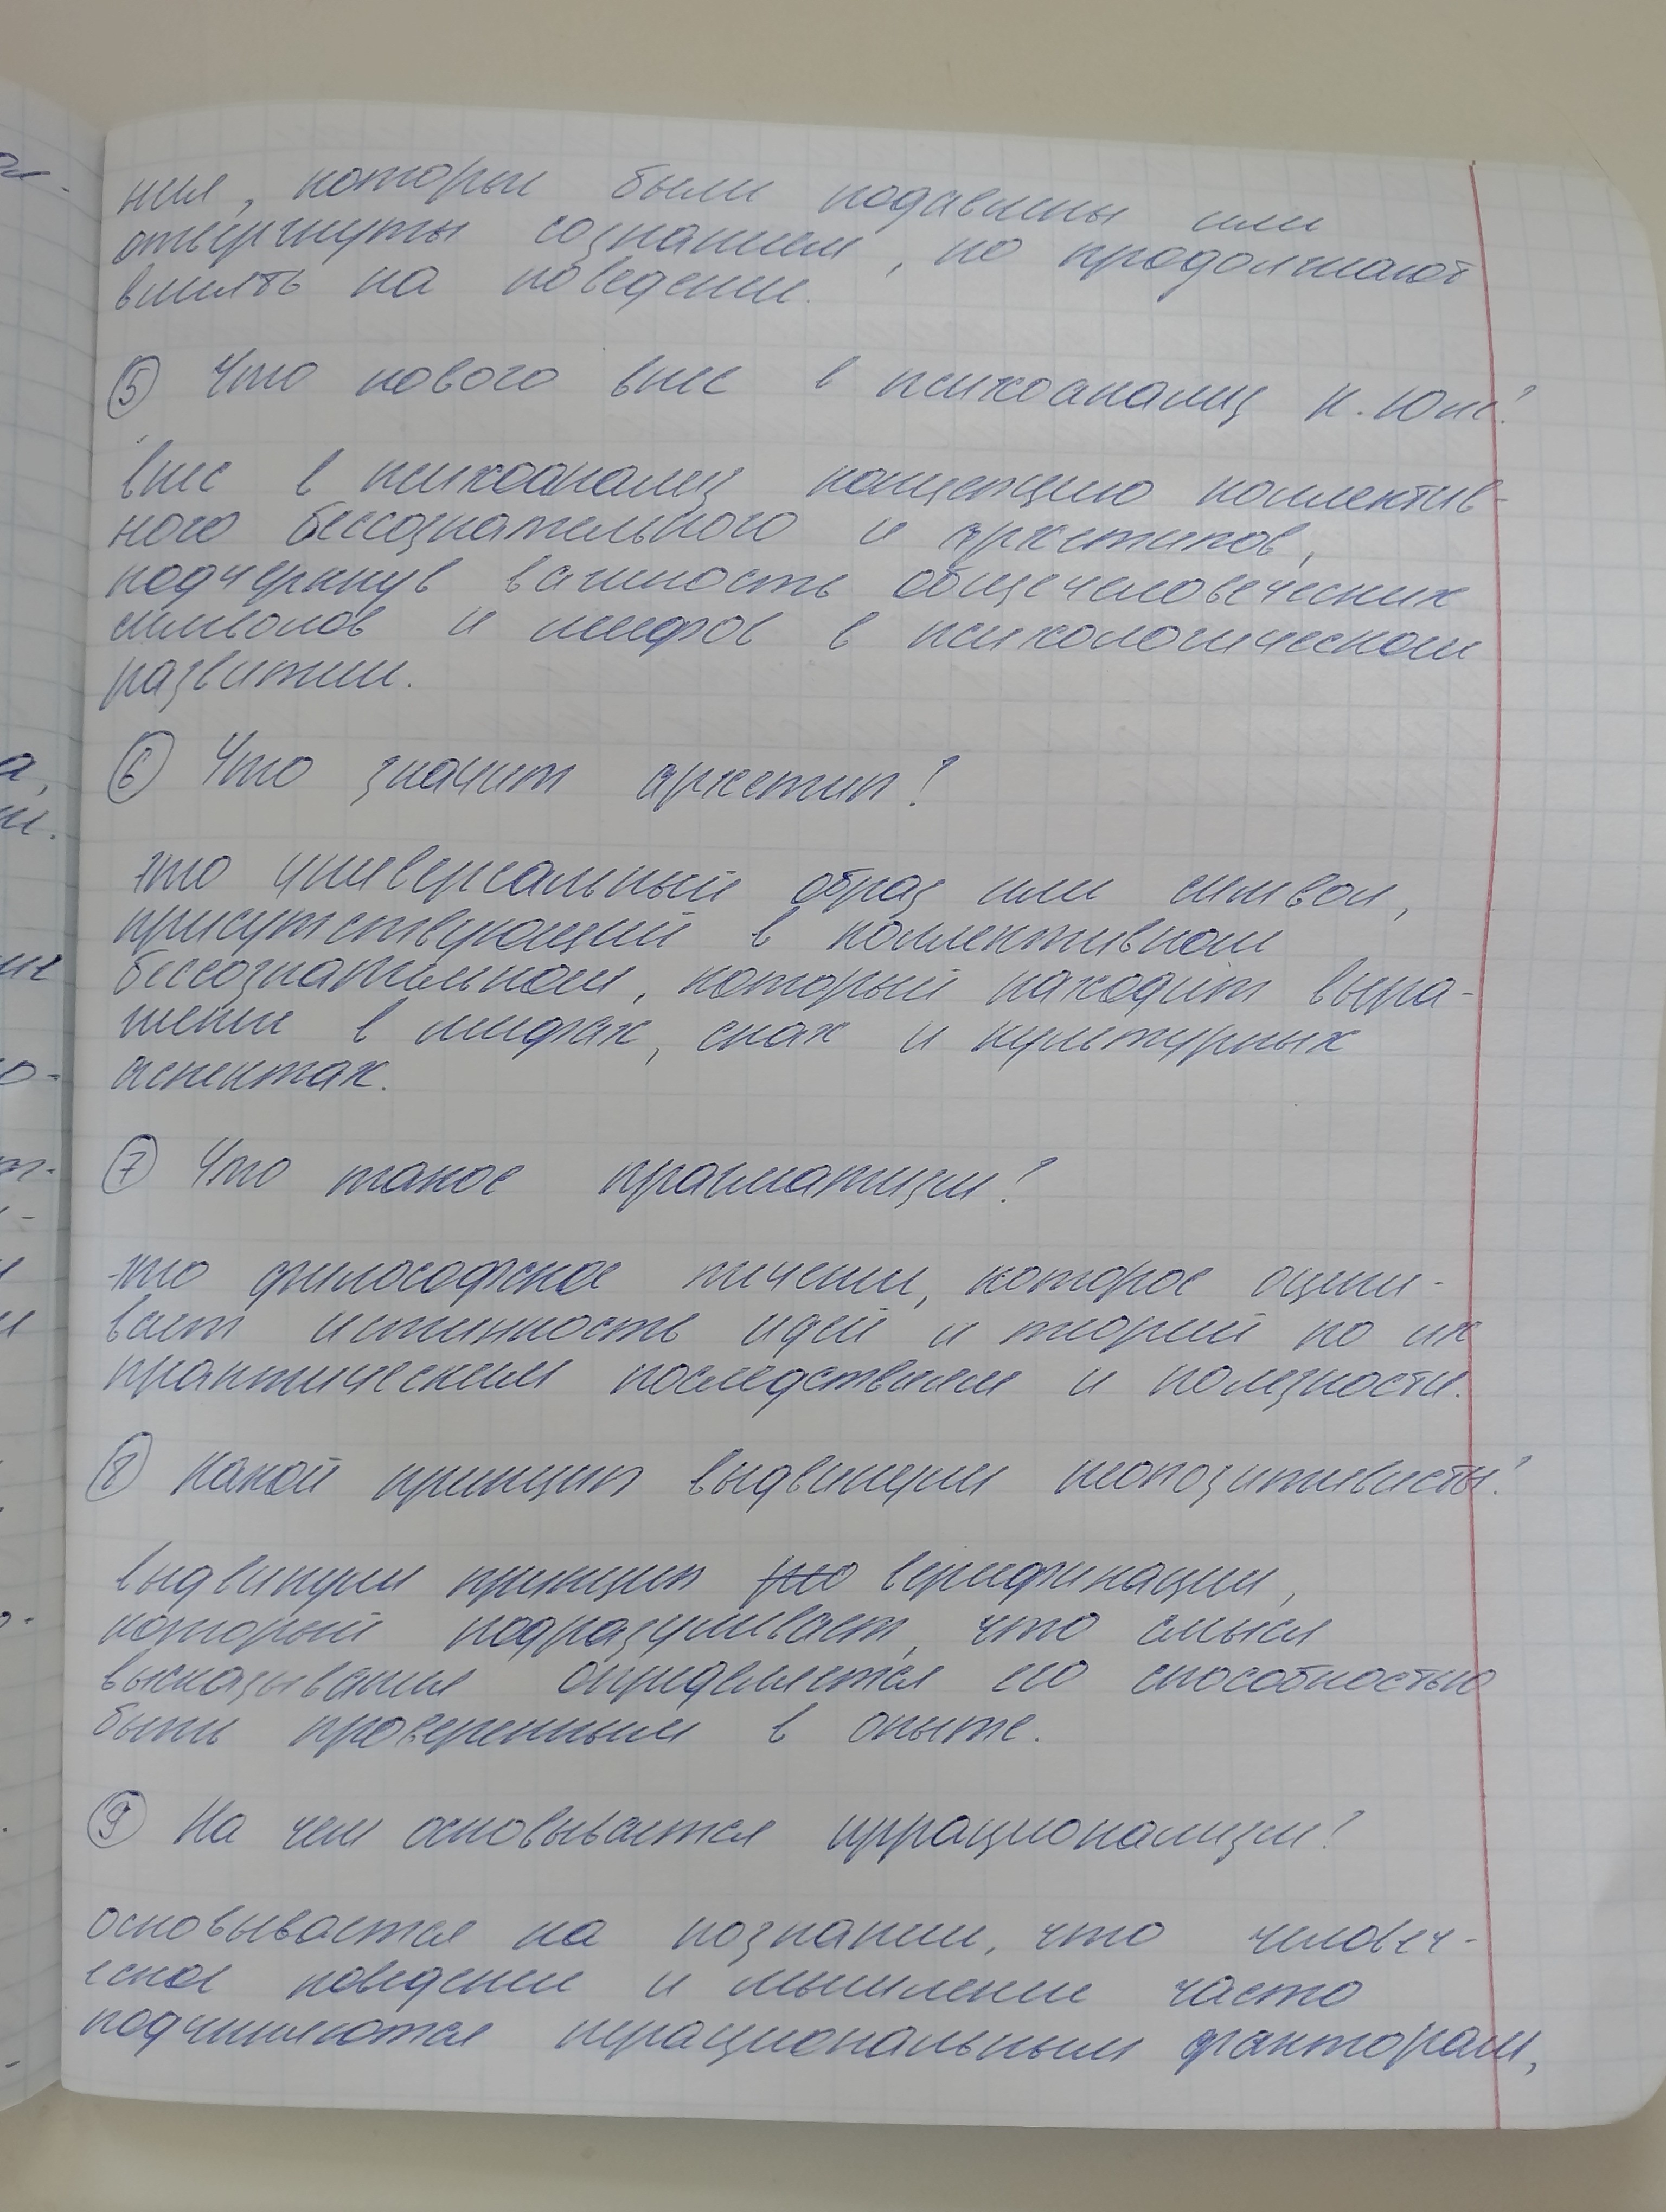 ния, которые были подавлены или
отвергнуты сознанием, но продолжают
влиять на поведение.
⑤ Что нового внес в психоанализ К. Юнг?
внес в психоанализ концепцию коллектив-
ного бессознательного и архетипов,
подчеркнув важность общечеловеческих
символов и мифов в психологическом
развитии.
⑥ Что значит архетип?
это универсальный образ или символ,
присутствующий в коллективном
бессознательном, который находит выра-
жение в мифах, снах и культурных
аспектах.
⑦ Что такое прагматизм?
это философское течение, которое оцени-
вает истинность идей и теорий по их
практическим последствиям и полезности.
⑧ Какой принцип выдвинули неопозитивисты?
выдвинули принцип верификации,
который подразумевает, что смысл
высказывания определяется его способностью
быть проверенным в опыте.
⑨ На чем основывается иррационализм?
основывается на познании, что человеч-
еское поведение и мышление часто
подчиняются иррациональным факторам,